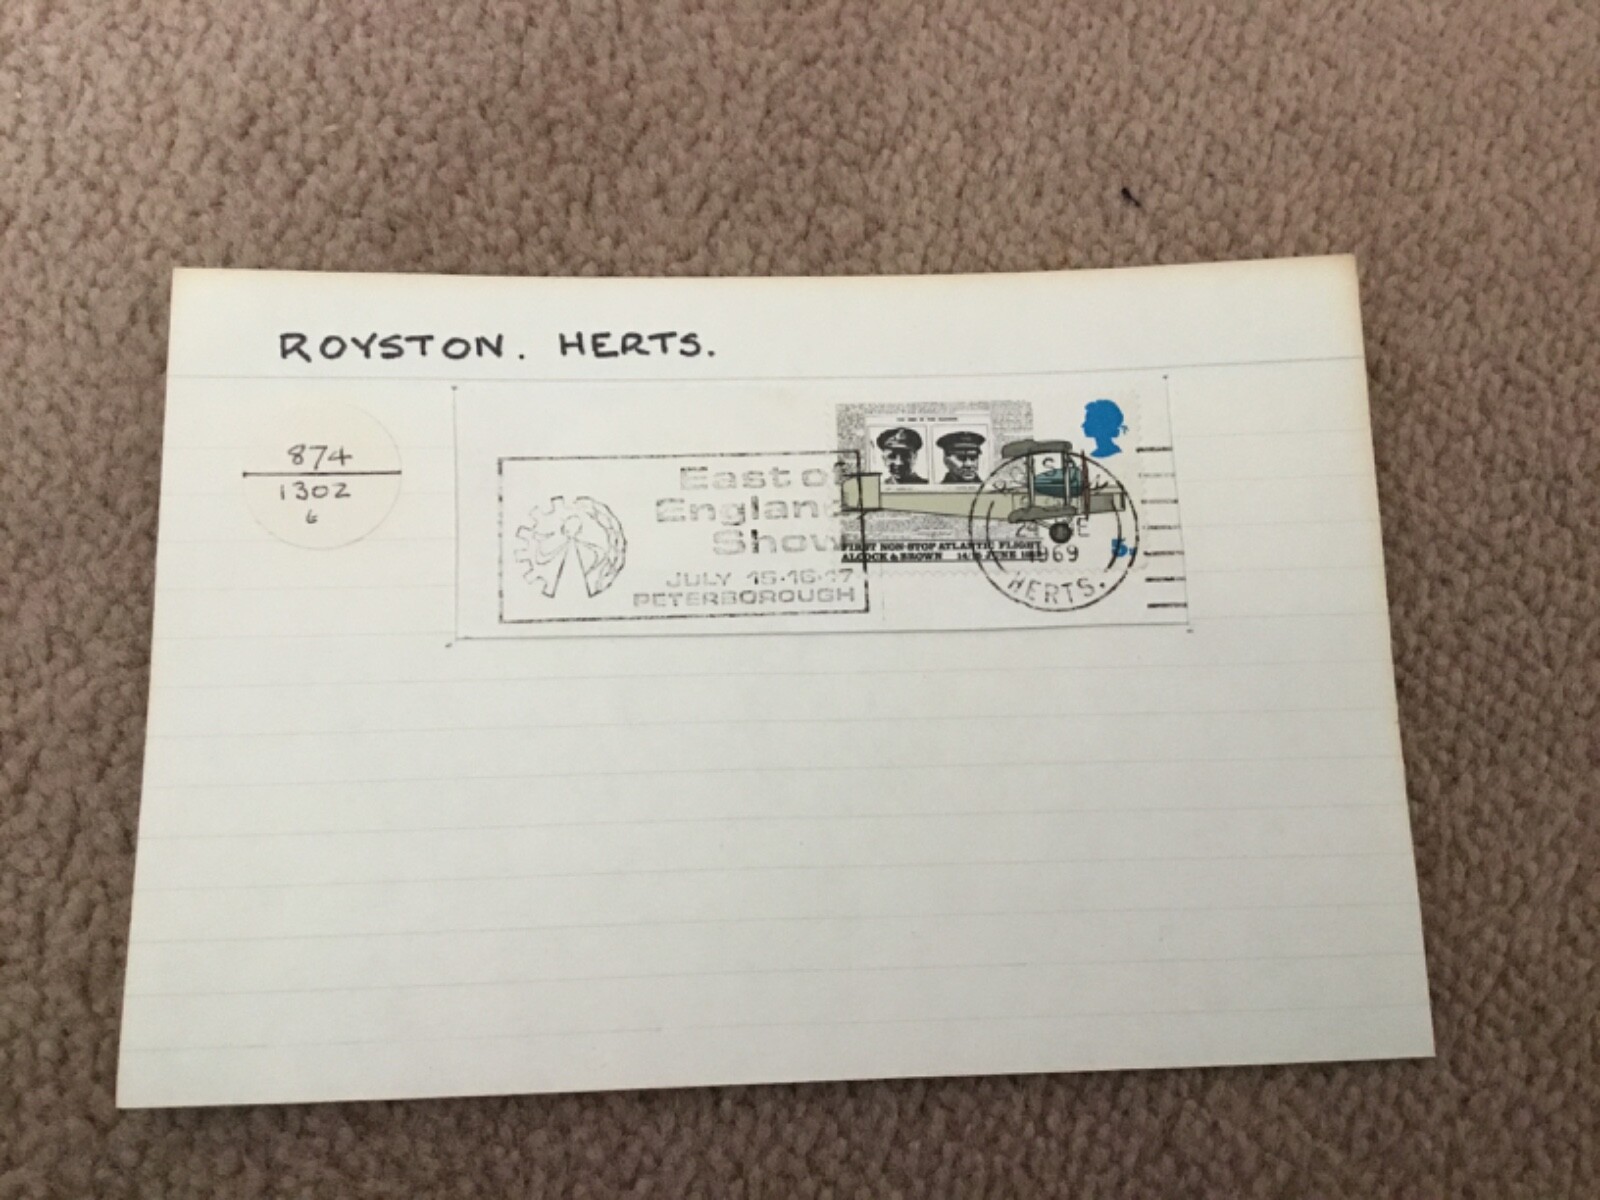 ROYSTON. HERTS.
874
1302
6
East of
England
Show
JULY 15·16·17
PETERBOROUGH
FIRST NON-STOP ATLANTIC FLIGHT
ALCOCK & BROWN 14/15 JUNE
1969
HERTS.